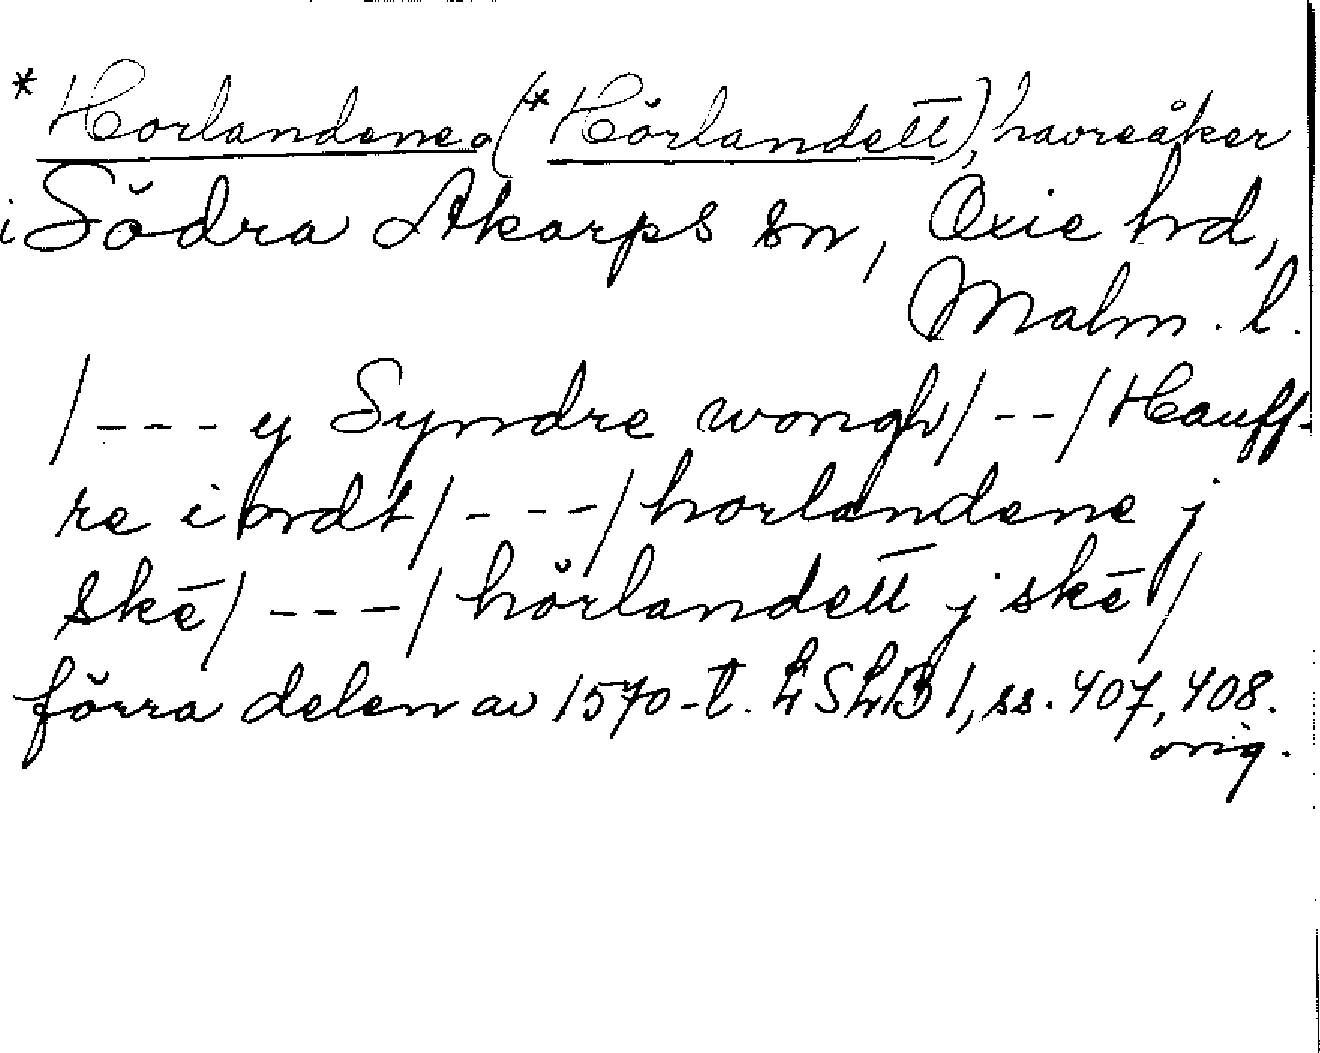 * Horlandene o (* Hörlandett), havreåker
i Södra Åkarps sn, Oxie hd,
Malm. l.
/--- y Syndre wongh/--/Hauff-
re iordt/---/horlandene j
skē/---/hörlandett j skē/
förra delen av 1570-t. LSLB 1, ss. 407, 408.
orig.